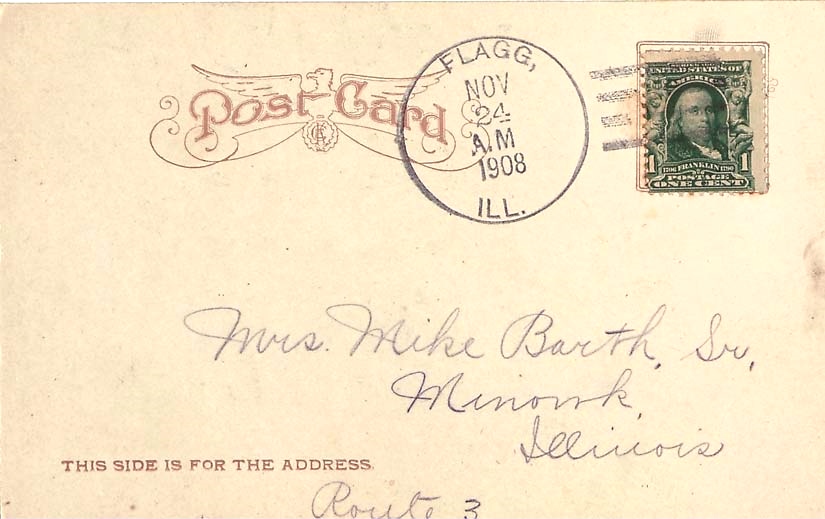 Post Card
FLAGG,
NOV
24
A.M
1908
ILL.
UNITED STATES OF
AMERICA
1 1706 FRANKLIN 1790 1
POSTAGE
ONE CENT
Mrs. Mike Barth, Sr,
Minonk,
Illinois
THIS SIDE IS FOR THE ADDRESS.
Route 3